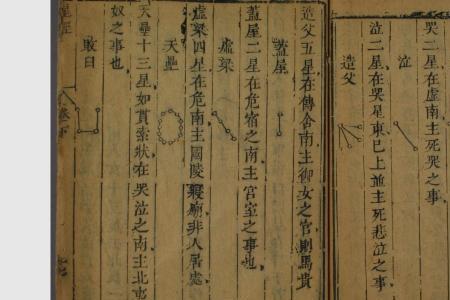 哭二星在虛南主死哭之事
泣
泣二星在哭星東已上並主死悲泣之事
造父
造父五星在傳舍南主御女之官則馬貴
蓋屋
蓋屋二星在危宿之南主宮室之事也
虛梁
虛梁四星在危南主園陵寢廟非人居處
天壘
天壘十三星如貫索狀在哭泣之南主北夷
奴之事也
敗臼